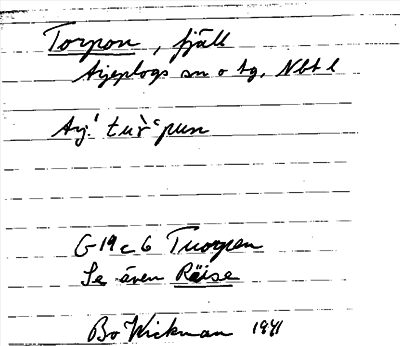 Torpon, fjäll
Arjeplogs sn o tg, Nbt l
Arj
G 19 c 6 Tuorpen
Se även Räise
Bo Wickman 1941